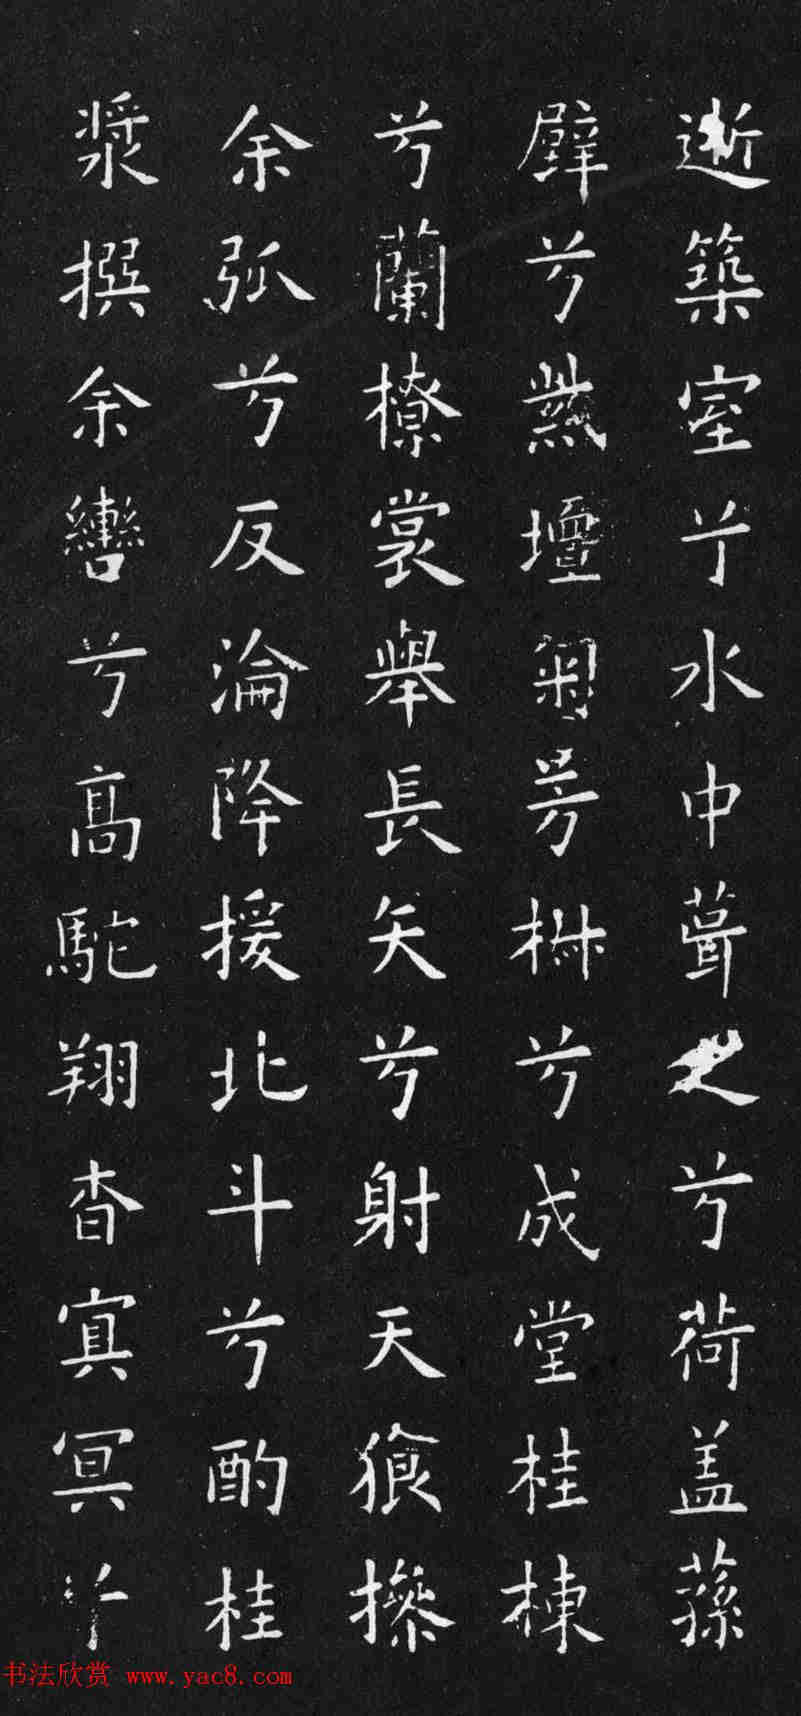 逝築室兮水中葺之兮荷盖蓀
壁兮紫壇匊芳椒兮成堂桂棟
兮蘭橑裳舉長矢兮射天狼操
余弧兮反淪降援北斗兮酌桂
漿撰余轡兮高駝翔杳冥冥兮
书法欣赏 www.yac8.com